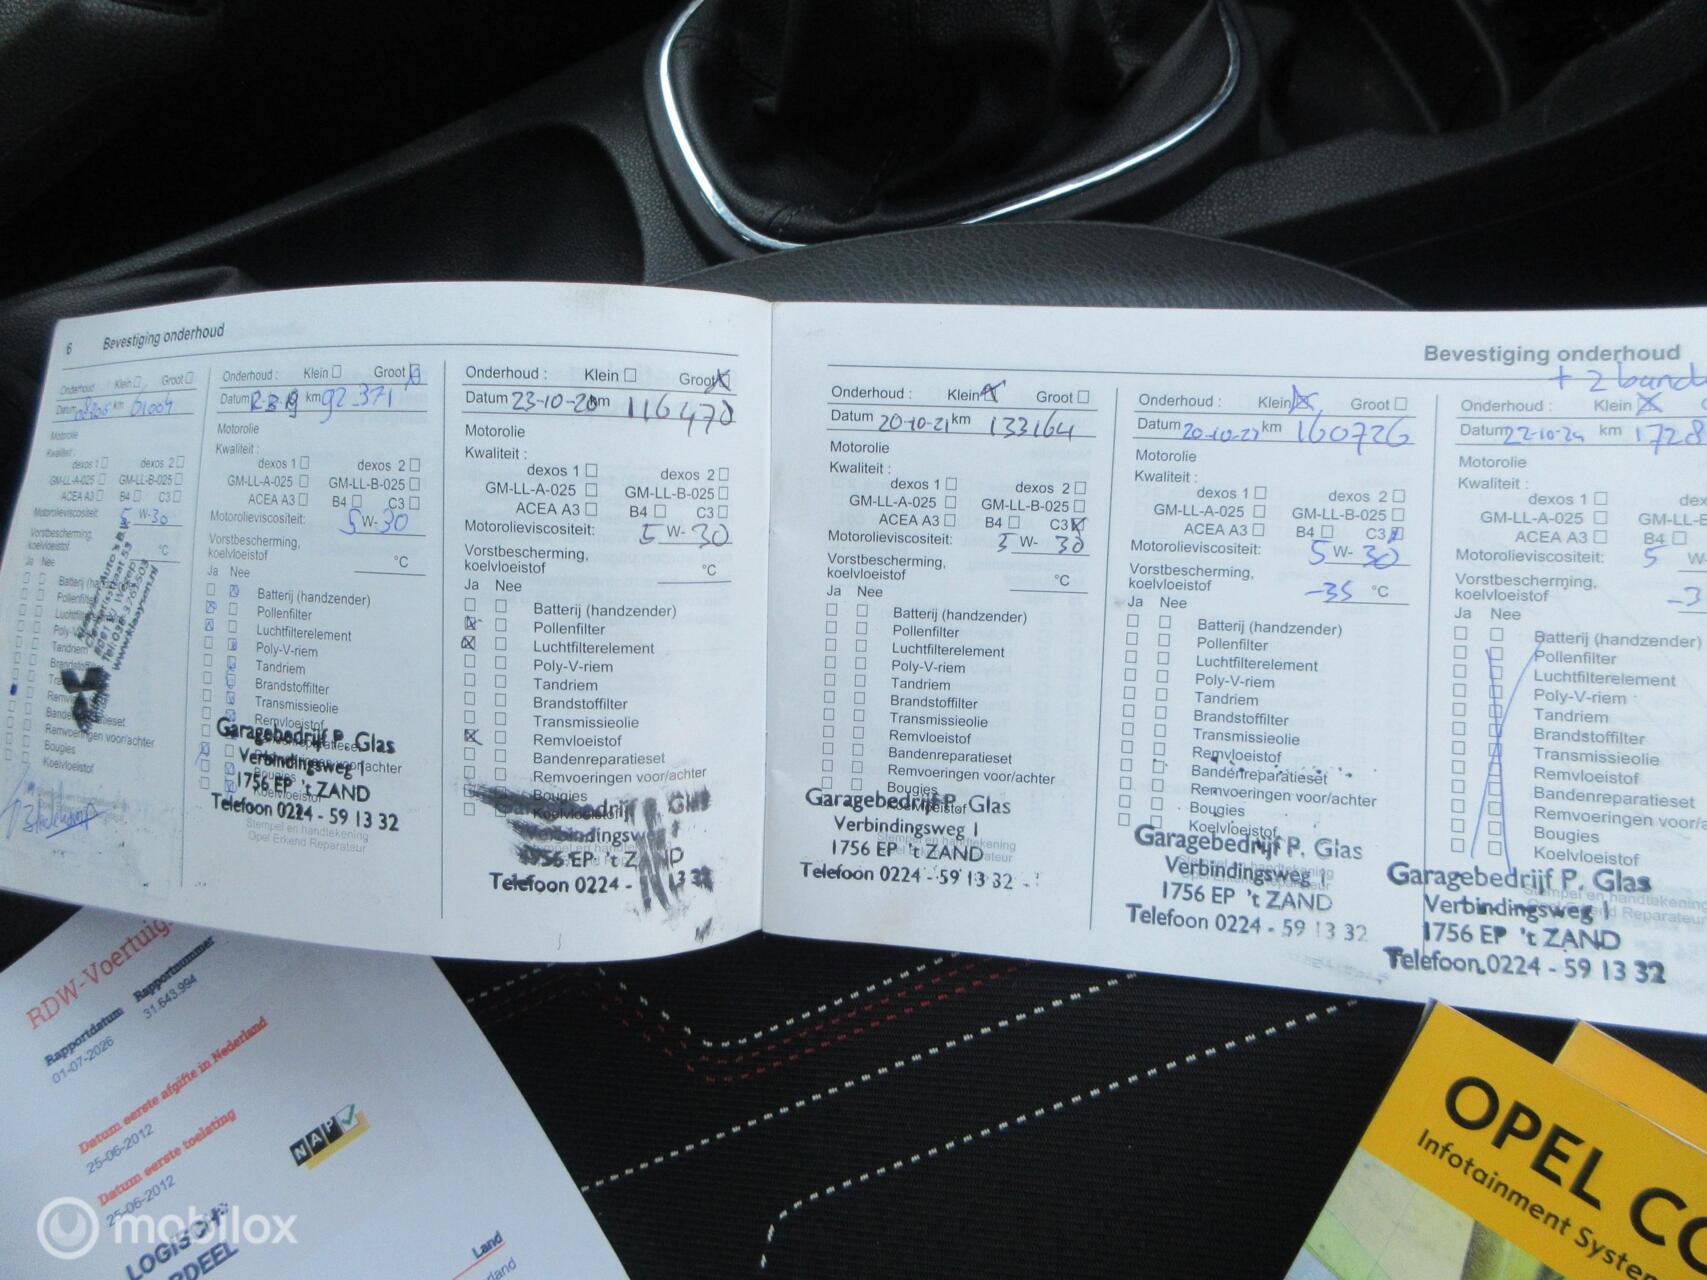 6 Bevestiging onderhoud
Onderhoud Klein Groot
Datum km 61004
Motorolie
Kwaliteit:
dexos 1 dexos 2
GM-LL-A-025 GM-LL-B-025
ACEA A3 B4 C3
Motorolieviscositeit: 5 W-30
Vorstbescherming,
koelvloeistof °C
Ja Nee
Tandriem
Bandenreparatieset
Remvoeringen voor/achter
Bougies
Koelvloeistof
www.klaaysen.nl
Onderhoud : Klein Groot
Datum km 92 371
Motorolie
Kwaliteit :
dexos 1 dexos 2
GM-LL-A-025 GM-LL-B-025
ACEA A3 B4 C3
Motorolieviscositeit: 5 W- 30
Vorstbescherming,
koelvloeistof °C
Ja Nee
Batterij (handzender)
Pollenfilter
Luchtfilterelement
Poly-V-riem
Tandriem
Brandstoffilter
Transmissieolie
Remvloeistof
Bougies
Koelvloeistof
Garagebedrijf P. Glas
Verbindingsweg 1
1756 EP 't ZAND
Telefoon 0224 - 59 13 32
Stempel en handtekening
Opel Erkend Reparateur
Onderhoud : Klein Groot
Datum 23-10-20 km 116470
Motorolie
Kwaliteit :
dexos 1 dexos 2
GM-LL-A-025 GM-LL-B-025
ACEA A3 B4 C3
Motorolieviscositeit: 5 W- 30
Vorstbescherming,
koelvloeistof °C
Ja Nee
Batterij (handzender)
Pollenfilter
Luchtfilterelement
Poly-V-riem
Tandriem
Brandstoffilter
Transmissieolie
Remvloeistof
Bandenreparatieset
Remvoeringen voor/achter
Bougies
Koelvloeistof
Verbindingsweg
1756 EP 't ZAND
Telefoon 0224 - 13 32
Bevestiging onderhoud
Onderhoud : Klein Groot
Datum 20-10-21 km 133164
Motorolie
Kwaliteit :
dexos 1 dexos 2
GM-LL-A-025 GM-LL-B-025
ACEA A3 B4 C3
Motorolieviscositeit: 5 W- 30
Vorstbescherming,
koelvloeistof °C
Ja Nee
Batterij (handzender)
Pollenfilter
Luchtfilterelement
Poly-V-riem
Tandriem
Brandstoffilter
Transmissieolie
Remvloeistof
Bandenreparatieset
Remvoeringen voor/achter
Bougies
Koelvloeistof
Garagebedrijf P. Glas
Verbindingsweg 1
1756 EP 't ZAND
Telefoon 0224 - 59 13 32
Onderhoud : Klein Groot
Datum km 160726
Motorolie
Kwaliteit :
dexos 1 dexos 2
GM-LL-A-025 GM-LL-B-025
ACEA A3 B4 C3
Motorolieviscositeit: 5 W- 30
Vorstbescherming,
koelvloeistof -35 °C
Ja Nee
Batterij (handzender)
Pollenfilter
Luchtfilterelement
Poly-V-riem
Tandriem
Brandstoffilter
Transmissieolie
Remvloeistof
Bandenreparatieset
Remvoeringen voor/achter
Bougies
Koelvloeistof
Garagebedrijf P. Glas
Verbindingsweg 1
1756 EP 't ZAND
Telefoon 0224 - 59 13 32
+ 2 
Onderhoud : Klein
Datum 22-10-24 km 1728
Motorolie
Kwaliteit :
dexos 1 dexos
GM-LL-A-025 GM-LL-B
ACEA A3 B4
Motorolieviscositeit: 5 W-
Vorstbescherming,
koelvloeistof -3
Ja Nee
Batterij (handzender)
Pollenfilter
Luchtfilterelement
Poly-V-riem
Tandriem
Brandstoffilter
Transmissieolie
Remvloeistof
Bandenreparatieset
Remvoeringen voor/a
Bougies
Koelvloeistof
Garagebedrijf P. Glas
Stempel en handtekening
Opel Erkend Reparateur
Verbindingsweg 1
1756 EP 't ZAND
Telefoon 0224 - 59 13 32
RDW-Voertuig-
Rapportdatum Rapportnummer
01-07-2026 31.643.994
Datum eerste afgifte in Nederland
25-06-2012
Datum eerste toelating
25-06-2012
NAP
LOGISCH
RDEEL
Land
rland
OPEL CO
Infotainment System
mobilox